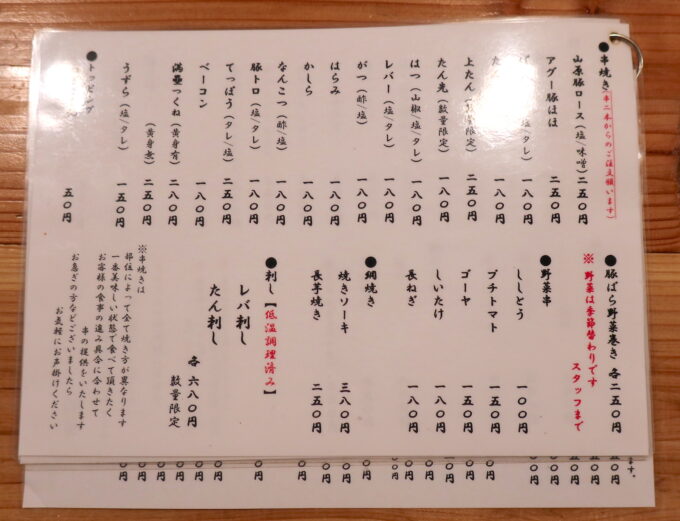 ●串焼き(串二本からのご注文願います)
山原豚ロース(塩/味噌)二五〇円
アグー豚ほほ 二五〇円
塩/タレ) 一八〇円
た 一八〇円
上たん(数量限定) 二五〇円
たん先(数量限定) 一八〇円
はつ(山椒/塩/タレ) 一八〇円
レバー(塩/タレ) 一八〇円
がつ(酢/塩) 一八〇円
はらみ 一八〇円
かしら 一八〇円
なんこつ(酢/塩) 一八〇円
豚トロ(塩/タレ) 一八〇円
てっぽう(タレ/塩) 二五〇円
ベーコン 一八〇円
満塁つくね(黄身有) 二八〇円
(黄身無) 二五〇円
うずら(塩/タレ) 一五〇円
●トッピング
五〇円
●豚ばら野菜巻き 各二五〇円
※野菜は季節替わりです
スタッフまで
●野菜串
ししとう 一〇〇円
プチトマト 一五〇円
ゴーヤ 一五〇円
しいたけ 一八〇円
長ねぎ 一八〇円
●網焼き
焼きソーキ 三八〇円
長芋焼き 二五〇円
●刺し【低温調理済み】
レバ刺し
たん刺し
各 六八〇円
数量限定
※串焼きは
部位によって全て焼き方が異なります
一番美味しい状態で食べて頂きたく
お客様の食事の進み具合に合わせて
串の提供をいたします
お急ぎの方などございましたら
お気軽にお声掛けください